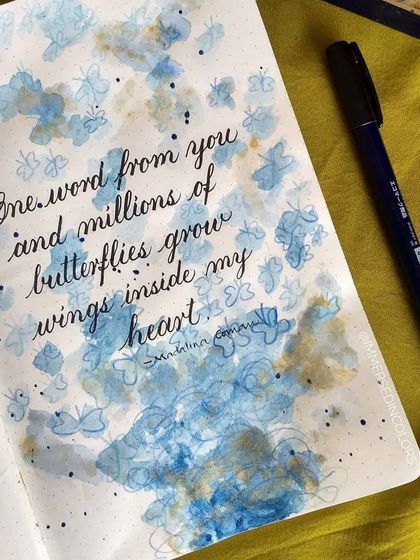 One word from you
and millions of
butterflies grow
wings inside my
heart.
-Madalina Coman
@IMMERSEDINCOLORS